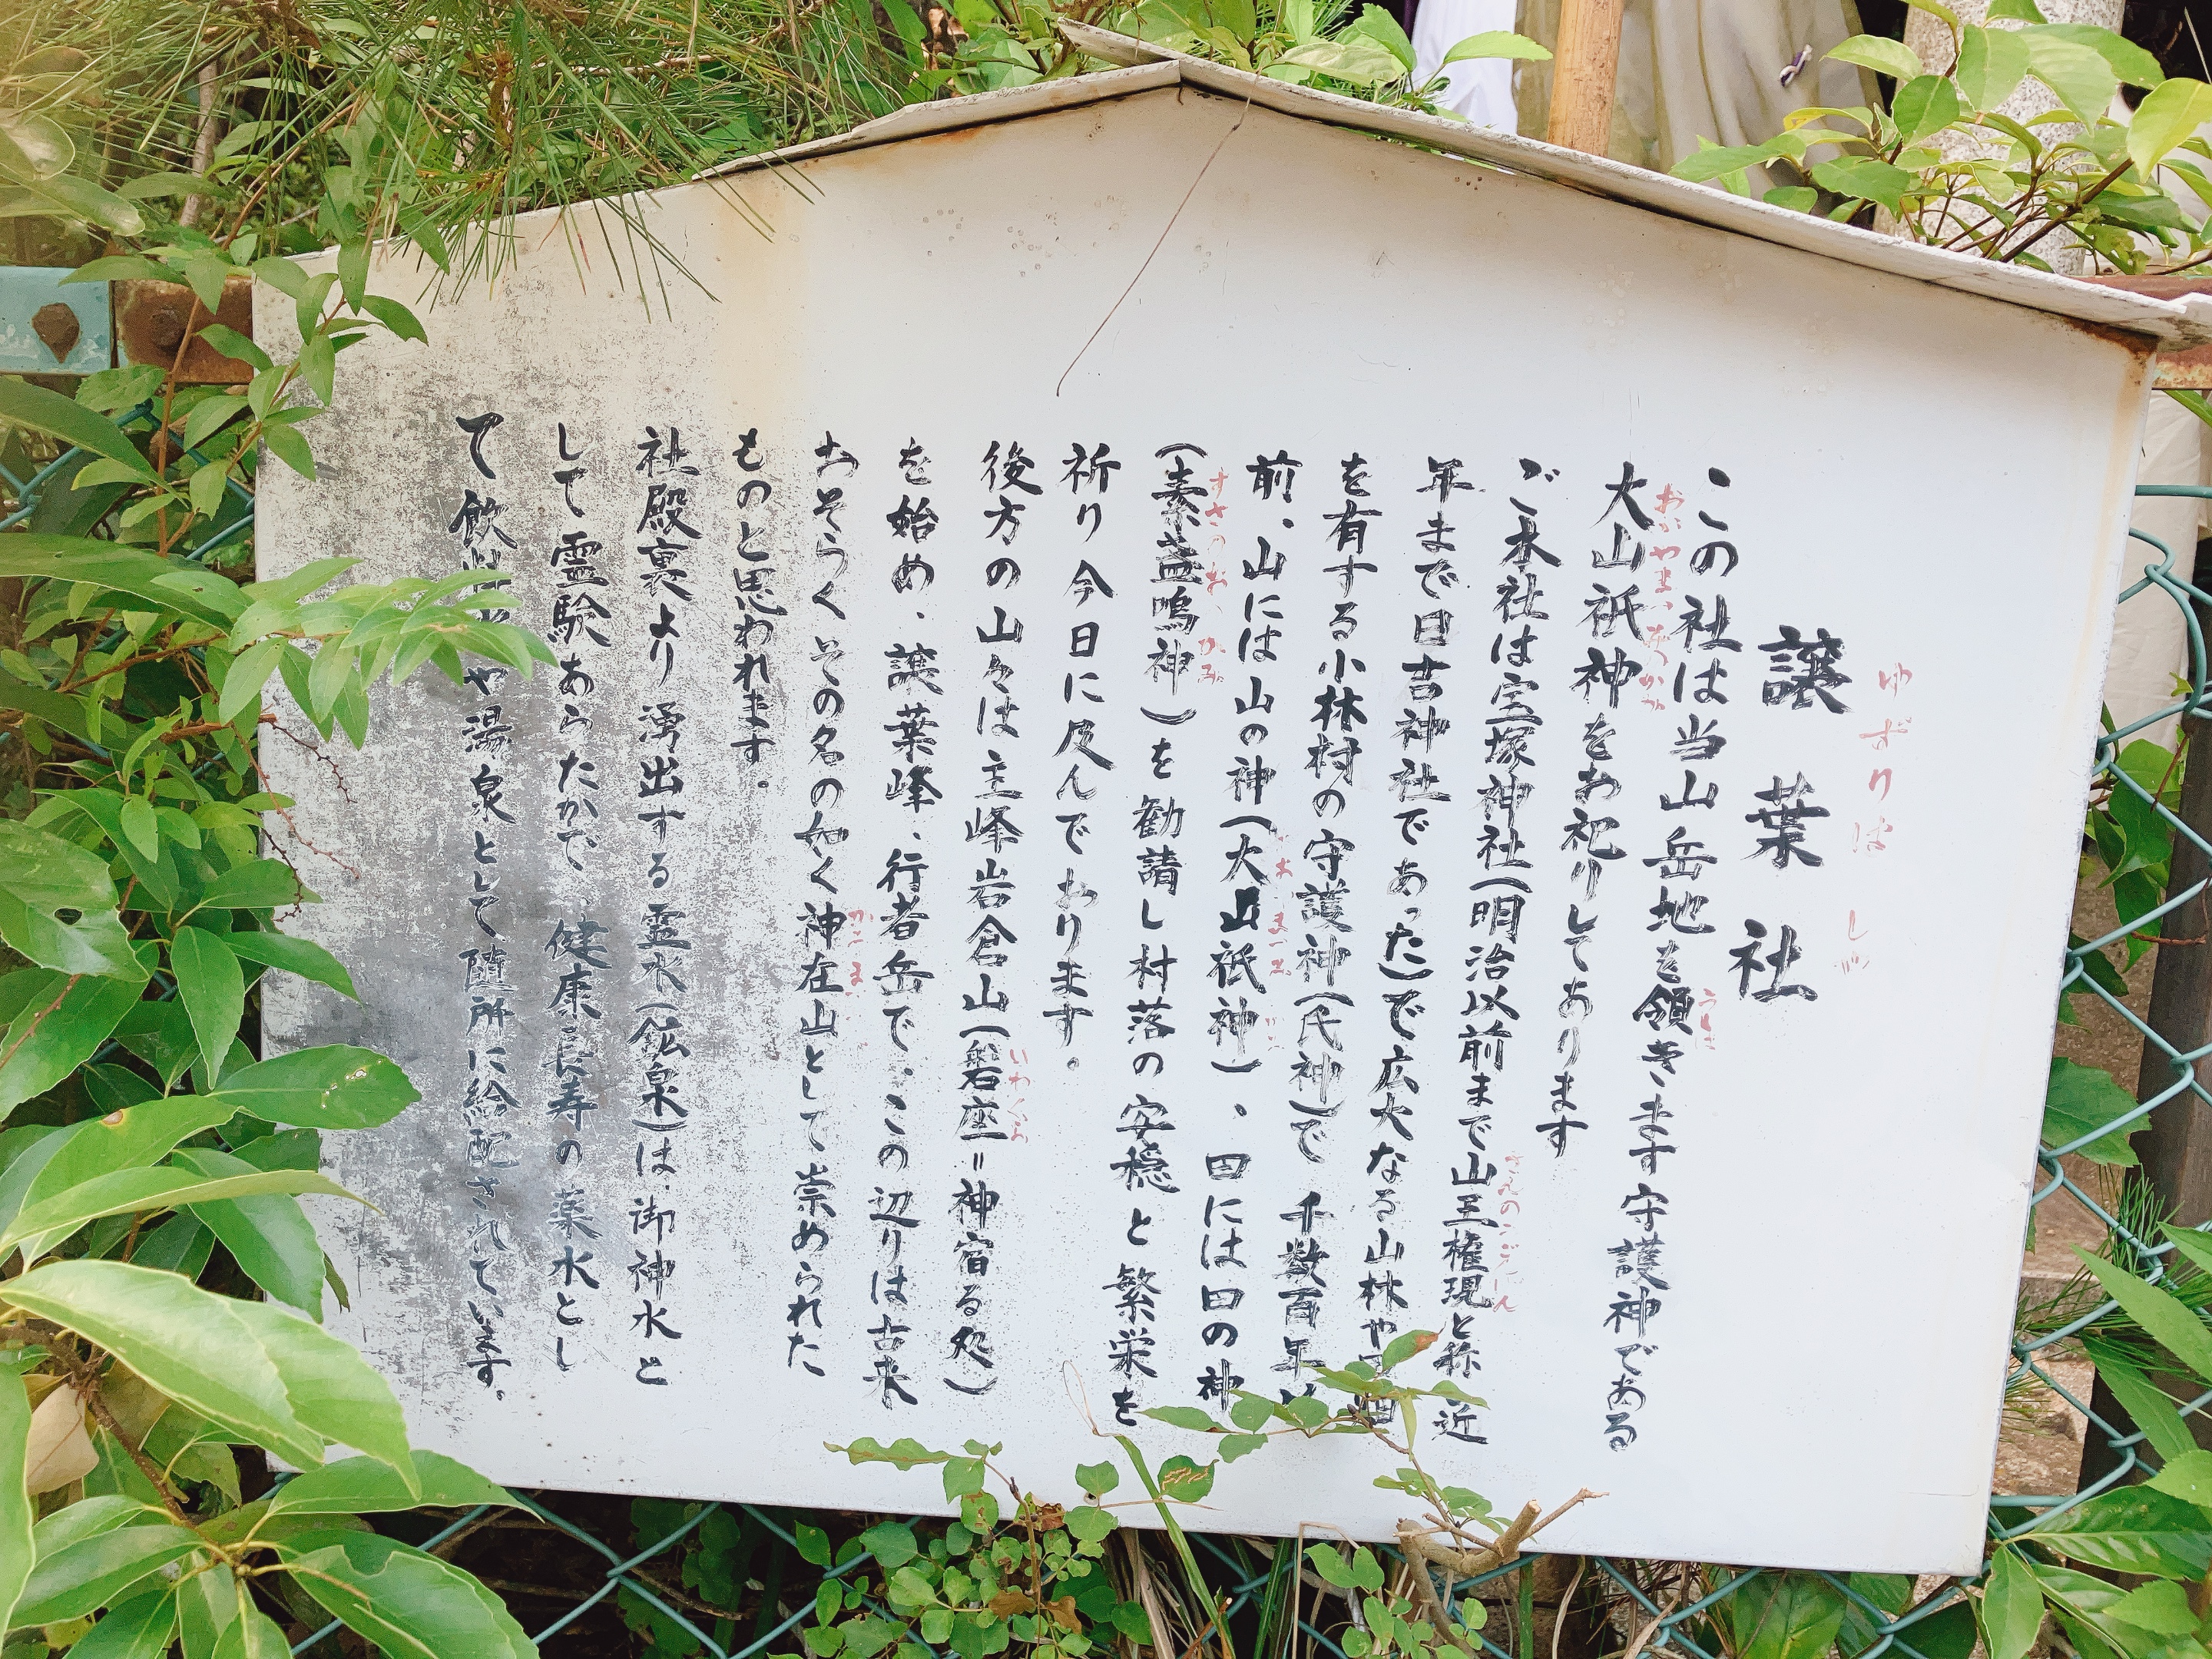 譲葉社
ゆずりは
この社は当山岳地を領きます守護神である
大山祇神をお祀りしてあります
ご本社は宝塚神社(明治以前まで山王権現と称 近
年まで日吉神社であった)で広大なる山林や
を有する小林村の守護神(氏神)で千数百年
前、山には山の神(大山祇神)、田には田の神
(素盞嗚神)を勧請し村落の安穏と繁栄を
すさのお かみ
祈り今日に及んでおります。
後方の山々は主峰岩倉山(磐座=神宿る処)
いわくら
を始め、譲葉峰、行者岳で、この辺りは古来
おそらくその名の如く神在山として崇められた
ものと思われます。
社殿裏より湧出する霊水(鉱泉)は御神水と
して霊験あらたかで、健康長寿の薬水とし
て飲 や湯泉として随所に給配されています。